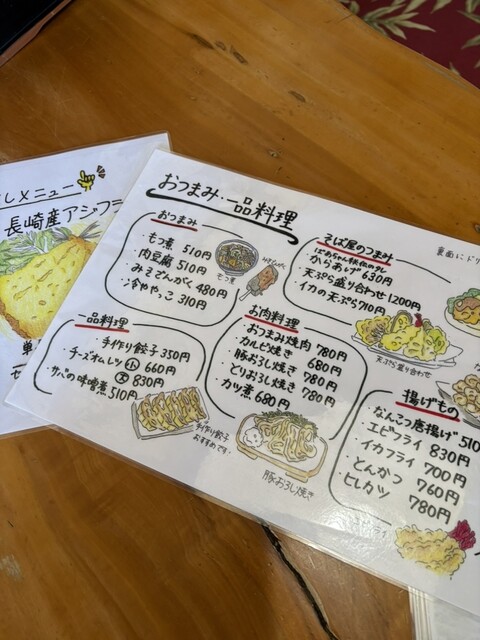 しメニュー
長崎産アジフラ
おつまみ・一品料理
おつまみ
・もつ煮 510円
・肉豆腐 510円
・みそでんがく 480円
・冷ややっこ 310円
もつ煮
みそでんがく
一品料理
・手作り餃子 350円
・チーズオムレツ 小 660円
大 830円
・サバの味噌煮 510円
手作り餃子
おすすめです
そば屋のつまみ
ばあちゃん秘伝のタレ
・からあげ 630円
・天ぷら盛り合わせ 1200円
・イカの天ぷら 710円
天ぷら盛り合わせ
お肉料理
・おつまみ焼肉 780円
・カルビ焼き 680円
・豚おろし焼き 780円
・とりおろし焼き 780円
・カツ煮 680円
豚おろし焼き
裏面にドリ
揚げもの
・なんこつ唐揚げ 510
・エビフライ 830円
・イカフライ 700円
・とんかつ 760円
・ヒレカツ 780円